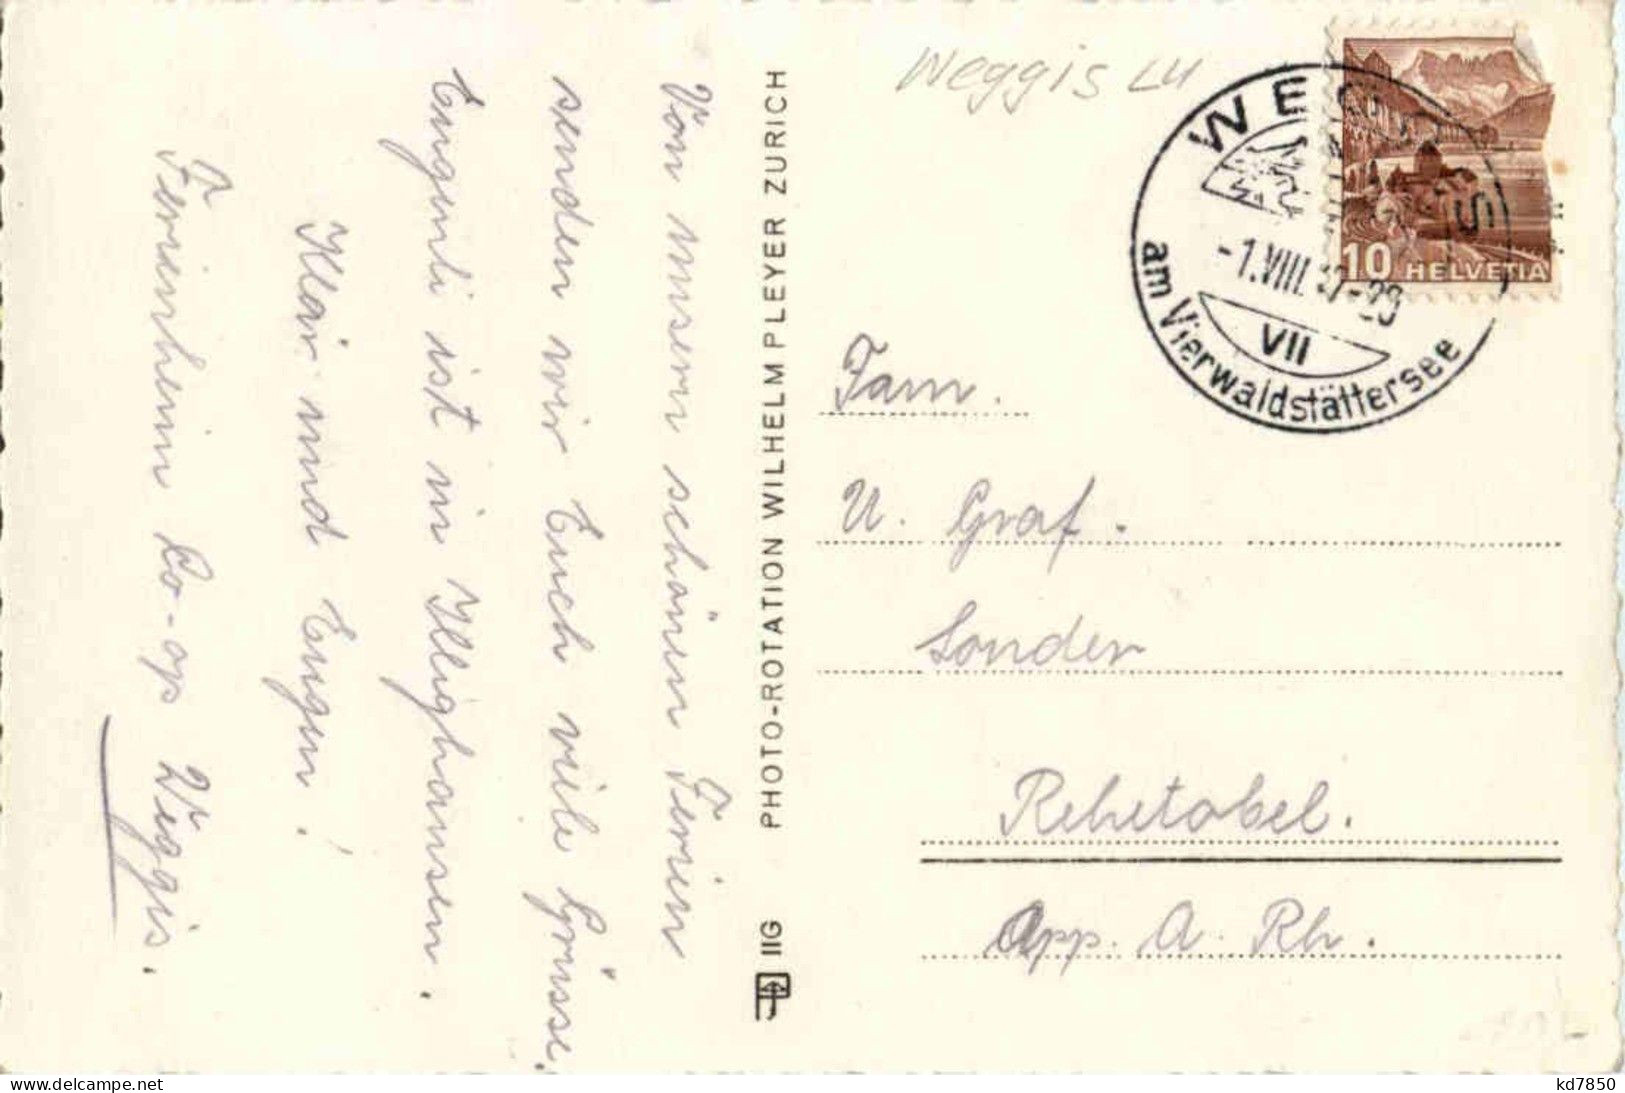 Weggis LU
WEGGIS
-1.VIII.
VII
am Vierwaldstättersee
10 HELVETIA
Von unsern schönen Ferien
senden wir Euch viele Grüsse.
Eugenli ist in Illighausen.
Klär. und Eugen!
Ferienheim Co-op Weggis.
PHOTO-ROTATION WILHELM PLEYER ZURICH
IIG
Fam.
U. Graf.
Sonder
Rehetobel.
App. A. Rh.
www.delcampe.net
kd7850